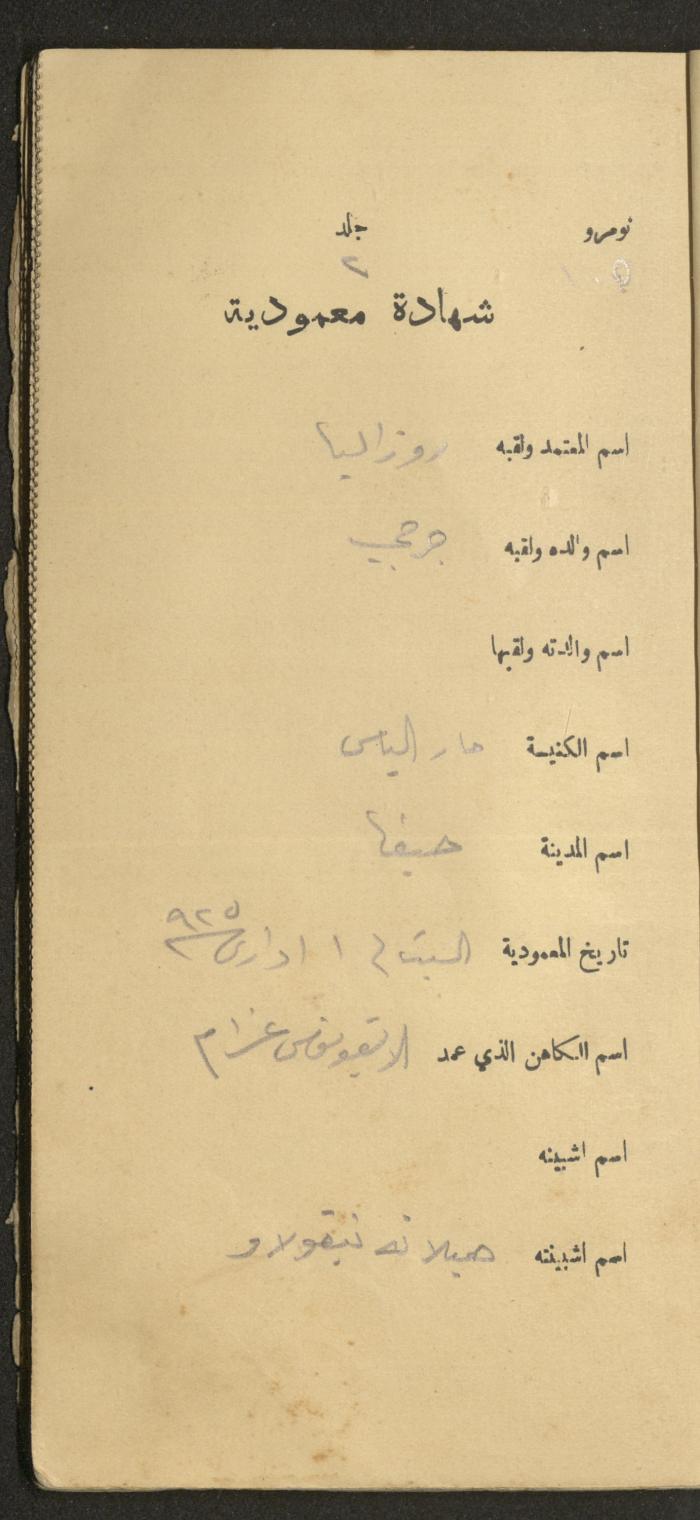 نومرو جلد
٢
شهادة معمودية
اسم المعتمد ولقبه روزاليا
اسم والده ولقبه جرجي
اسم والدته ولقبها
اسم الكنيسة مار الياس
اسم المدينة حيفا
تاريخ المعمودية السبت ١ ٩٢٥
اسم الكاهن الذي عمد عزام
اسم اشبينه
اسم اشبينته هيلانه نيقولاو